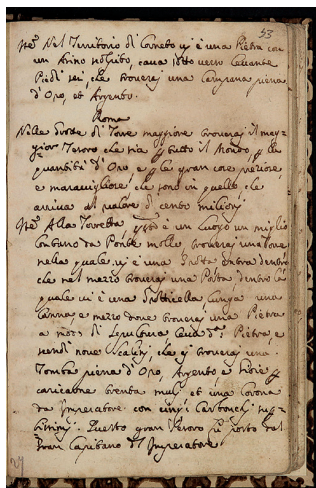 53
Nel Territorio di Corneto vi è una Pietra con
un Anno scolpito, cava sotto verso Levante
Piedi sei, che troverai una Campana piena
d'Oro, et Argento.
Roma
Nelle Grotte di Torre maggiore troverai il mag-
gior Tesoro che sia tutto il Mondo,
quantità d'Oro e gran cose preziose
e maravigliose che sono in quello che
arriva al valore di cento milioni
Alla Torretta, è un luogo un miglio
lontano da Ponte molle, troverai una Torre
nella quale vi è una Grotta entra dentro
che nel mezzo troverai una Porta, dentro la
quale vi è una Grotticella lunga una
Canna e mezzo dove troverai una Pietra
a modo di Sepultura leva Pietra, e
scendi nove Scalini, che troverai una
Tomba piena d'Oro, Argento e Gioie
caricarne trenta muli et una Corona
da Imperatore con cinque Carbonchi
Questo gran Tesoro fu posto dal
Gran Capitano dell'Imperatore